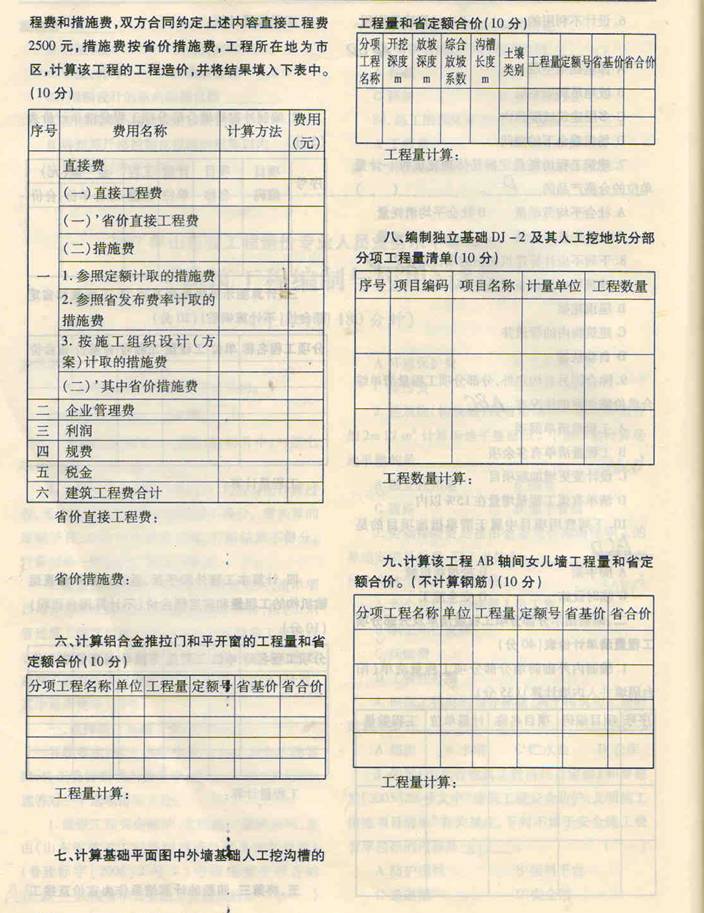 程费和措施费,双方合同约定上述内容直接工程费
2500元,措施费按省价措施费,工程所在地为市
区,计算该工程的工程造价,并将结果填入下表中。
(10分)
序号 费用名称 计算方法 费用(元)
直接费
(一)直接工程费
(一)'省价直接工程费
(二)措施费
一 1. 参照定额计取的措施费
2. 参照省发布费率计取的
措施费
3. 按施工组织设计(方
案)计取的措施费
(二)'其中省价措施费
二 企业管理费
三 利润
四 规费
五 税金
六 建筑工程费合计
省价直接工程费:
省价措施费:
六、计算铝合金推拉门和平开窗的工程量和省
定额合价(10分)
分项工程名称 单位 工程量 定额号 省基价 省合价
工程量计算:
七、计算基础平面图中外墙基础人工挖沟槽的
工程量和省定额合价(10分)
分项工程名称 开挖深度m 放坡深度m 综合放坡系数 沟槽长度m 土壤类别 工程量 定额号 省基价 省合价
工程量计算:
八、编制独立基础DJ-2及其人工挖地坑分部
分项工程量清单(10分)
序号 项目编码 项目名称 计量单位 工程数量
工程数量计算:
九、计算该工程AB轴间女儿墙工程量和省定
额合价。(不计算钢筋)(10分)
分项工程名称 单位 工程量 定额号 省基价 省合价
工程量计算: